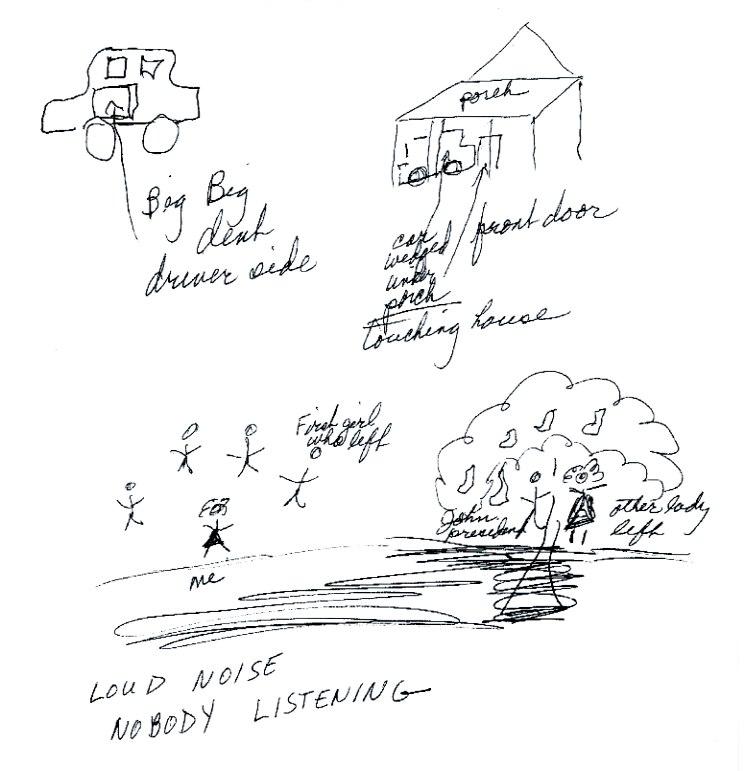 Big Big
dent
driver side
porch
front door
car
wedged
under
porch
touching house
First girl
who left
John
president
other lady
left
me
LOUD NOISE
NOBODY LISTENING